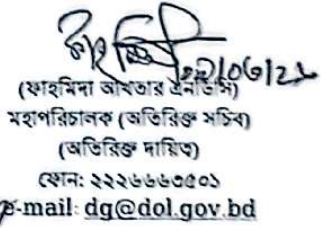 (ফাহমিদা আখতার এনডিসি)
মহাপরিচালক (অতিরিক্ত সচিব)
(অতিরিক্ত দায়িত্ব)
ফোন: ২২২৬৬৬৩৫০১
e-mail: dg@dol.gov.bd